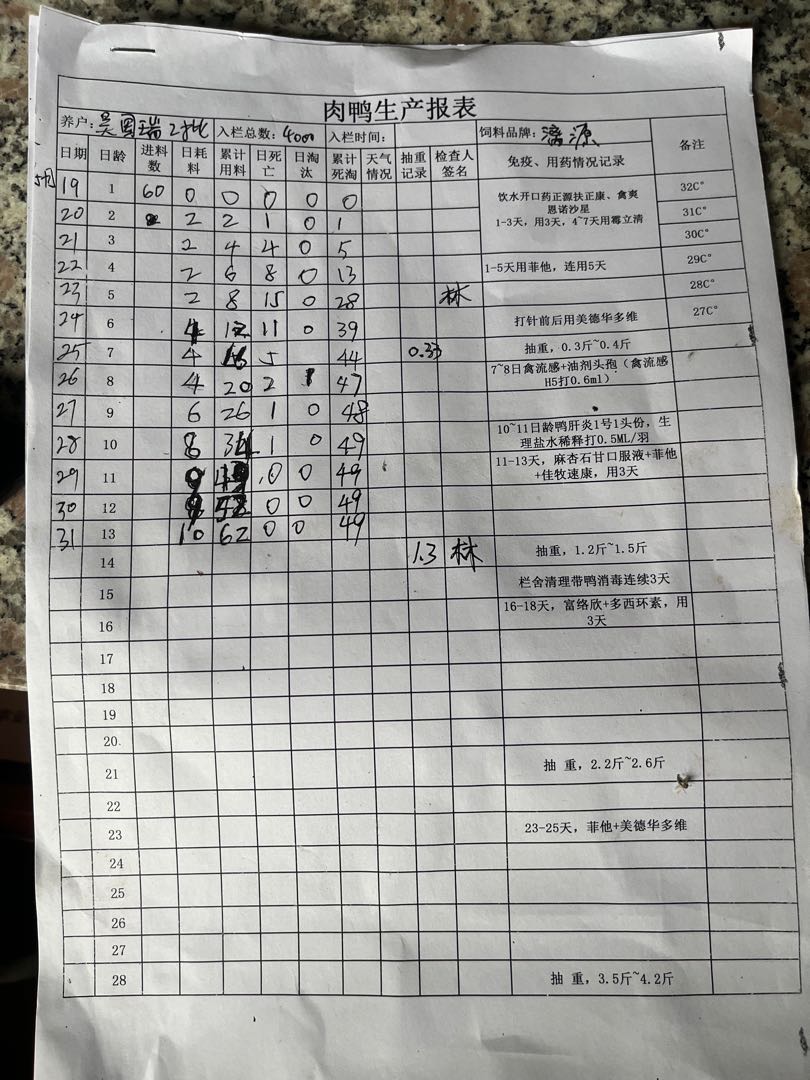 肉鸭生产报表
养户: 吴 瑞 2批 入栏总数: 4000 入栏时间: 饲料品牌: 漓源 备注
日期 日龄 进料数 日耗料 累计用料 日死亡 日淘汰 累计死淘 天气情况 抽重记录 检查人签名 免疫、用药情况记录
5月
19 1 60 0 0 0 0 0 饮水开口药正源扶正康、禽爽恩诺沙星 32C°
20 2 2 2 1 0 1 1-3天，用3天，4~7天用霉立清 31C°
21 3 2 4 4 0 5 30C°
22 4 2 6 8 0 13 1-5天用菲他，连用5天 29C°
23 5 2 8 15 0 28 林 28C°
24 6 4 12 11 0 39 打针前后用美德华多维 27C°
25 7 4 16 5 44 0.33 抽重，0.3斤~0.4斤
26 8 4 20 2 1 47 7~8日禽流感+油剂头孢（禽流感H5打0.6ml）
27 9 6 26 1 0 48
28 10 8 34 1 0 49 10~11日龄鸭肝炎1号1头份，生理盐水稀释打0.5ML/羽
29 11 9 43 0 0 49 11-13天，麻杏石甘口服液+菲他+佳牧速康，用3天
30 12 9 52 0 0 49
31 13 10 62 0 0 49
14 1.3 林 抽重，1.2斤~1.5斤
15 栏舍清理带鸭消毒连续3天
16 16-18天，富络欣+多西环素，用3天
17
18
19
20
21 抽 重，2.2斤~2.6斤
22
23 23-25天，菲他+美德华多维
24
25
26
27
28 抽 重，3.5斤~4.2斤